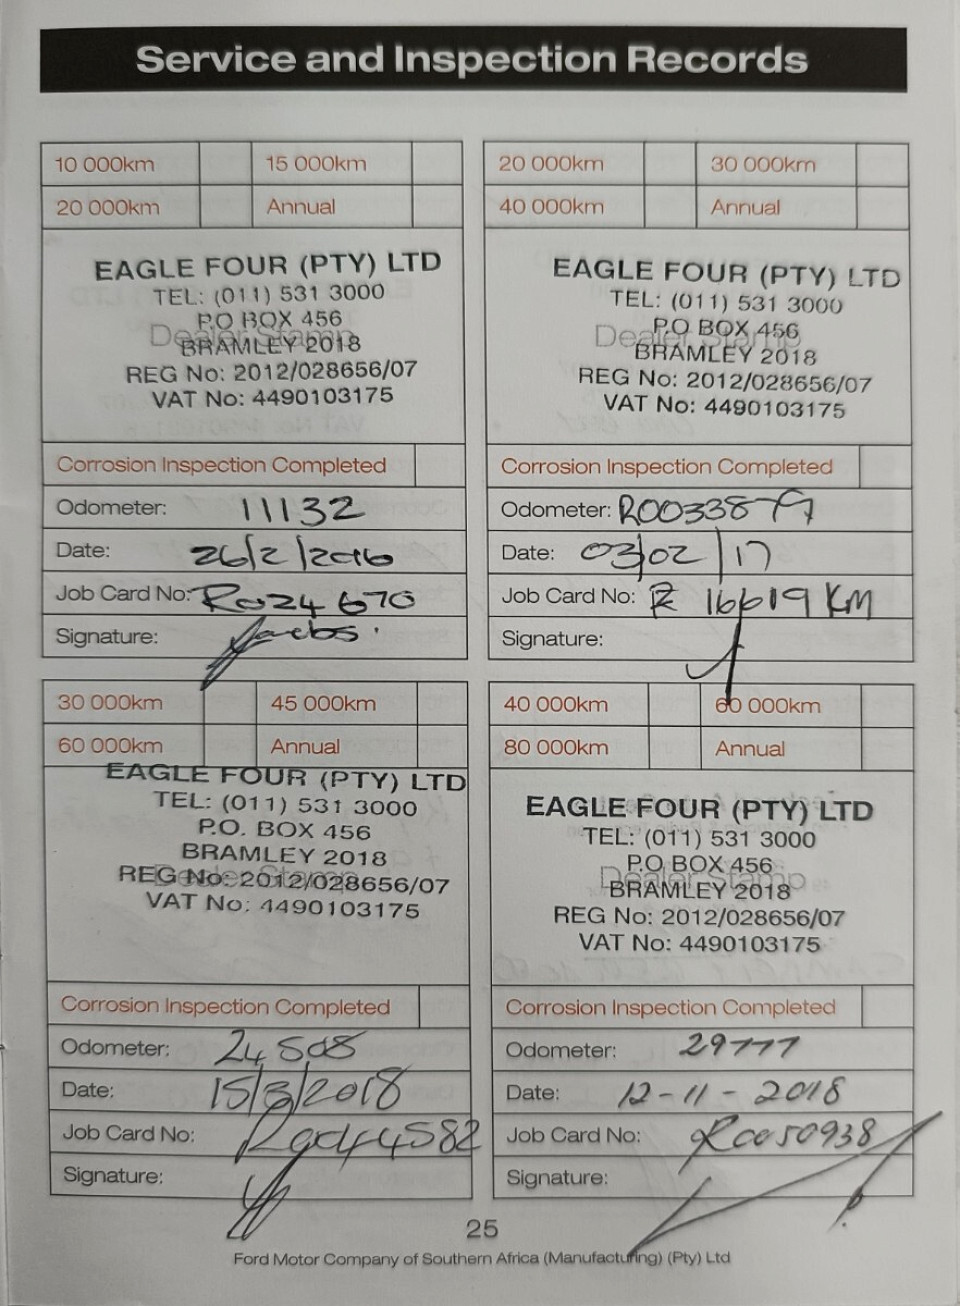 Service and Inspection Records
10 000km 15 000km
20 000km Annual
EAGLE FOUR (PTY) LTD
TEL: (011) 531 3000
P.O BOX 456
Dealer Stamp
BRAMLEY 2018
REG No: 2012/028656/07
VAT No: 4490103175
Corrosion Inspection Completed
Odometer: 11132
Date: 26/2/2016
Job Card No: R024670
Signature:
20 000km 30 000km
40 000km Annual
EAGLE FOUR (PTY) LTD
TEL: (011) 531 3000
P.O BOX 456
Dealer Stamp
BRAMLEY 2018
REG No: 2012/028656/07
VAT No: 4490103175
Corrosion Inspection Completed
Odometer:
Date: 03/02/17
Job Card No: 16619 KM
Signature:
30 000km 45 000km
60 000km Annual
EAGLE FOUR (PTY) LTD
TEL: (011) 531 3000
P.O. BOX 456
BRAMLEY 2018
Dealer Stamp
REG No: 2012/028656/07
VAT No: 4490103175
Corrosion Inspection Completed
Odometer: 24508
Date: 15/3/2018
Job Card No:
Signature:
40 000km 60 000km
80 000km Annual
EAGLE FOUR (PTY) LTD
TEL: (011) 531 3000
P.O BOX 456
Dealer Stamp
BRAMLEY 2018
REG No: 2012/028656/07
VAT No: 4490103175
Corrosion Inspection Completed
Odometer: 29777
Date: 12-11-2018
Job Card No: R0050938
Signature:
25
Ford Motor Company of Southern Africa (Manufacturing) (Pty) Ltd